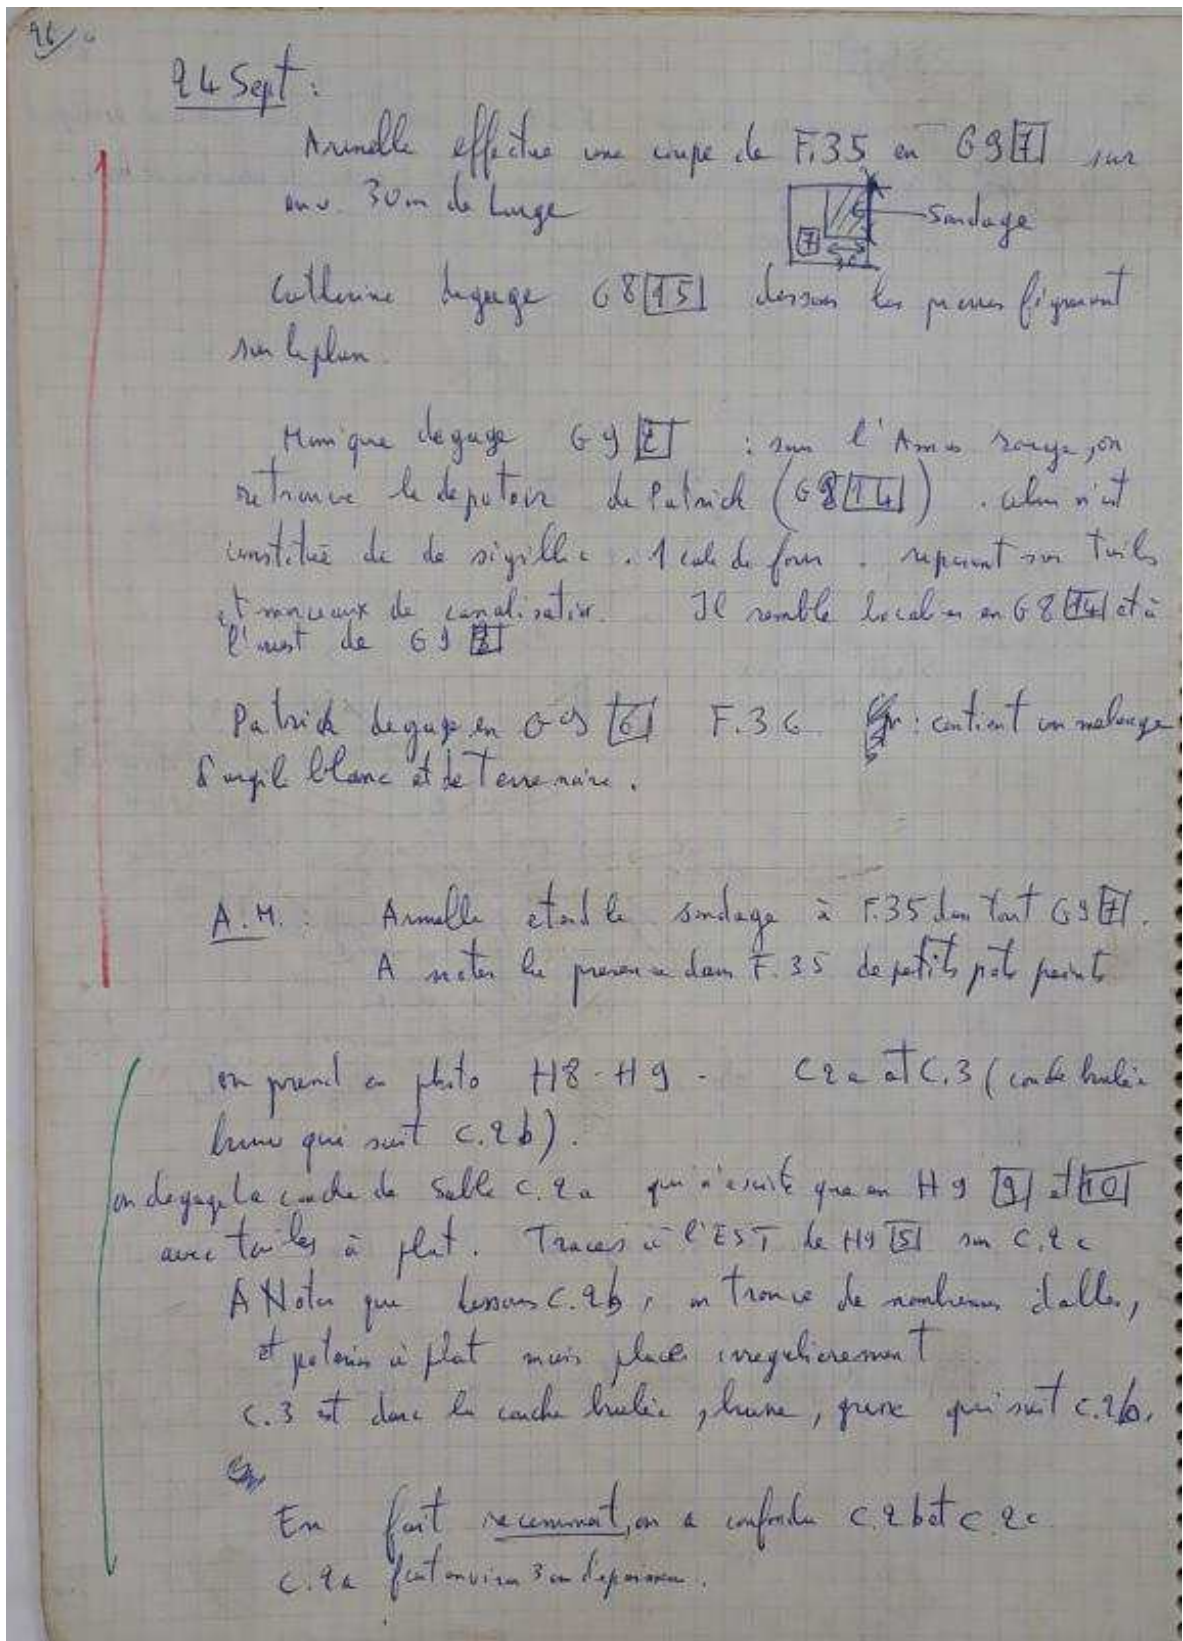 24 Sept :
Armelle effectue une coupe de F.35 en G9 7 sur
env. 30 cm de large
Sondage
7
30
Catherine degage G8 15 dessous les pierres figurant
sur le plan.
Monique degage G9 2 : sous l'Amas rouge, on
retrouve le depotoir de Patrick (G8 14).
constitué de de sigillée. 1 cale de four. reposant sur tuiles
et morceaux de canalisation. Il semble localisé en G8 14 et à
l'ouest de G9
Patrick degage en G9 6 F.36 : contient un melange
d'argile blanc et de Terre noire.
A.M. : Armelle etend le sondage à F.35 dans tout G9 7.
A noter la presence dans F.35 de petits pots peints
on prend en photo H8 - H9 - C2a et C.3 (couche brulée
brune qui suit C.2b).
on degage la couche de sable C.2a qui n'existe que en H9 9 et 10
avec tuiles à plat. Traces à l'EST de H9 5 sur C.2c
A Noter que dessous C.2b, on trouve de nombreuses dalles,
et poteries à plat mais placés irregulierement
C.3 est donc la couche brulée, brune, qui suit C.2b.
En fait recemment, on a confondu C.2b et C.2c
C.2a fait environ 3 cm d'epaisseur.